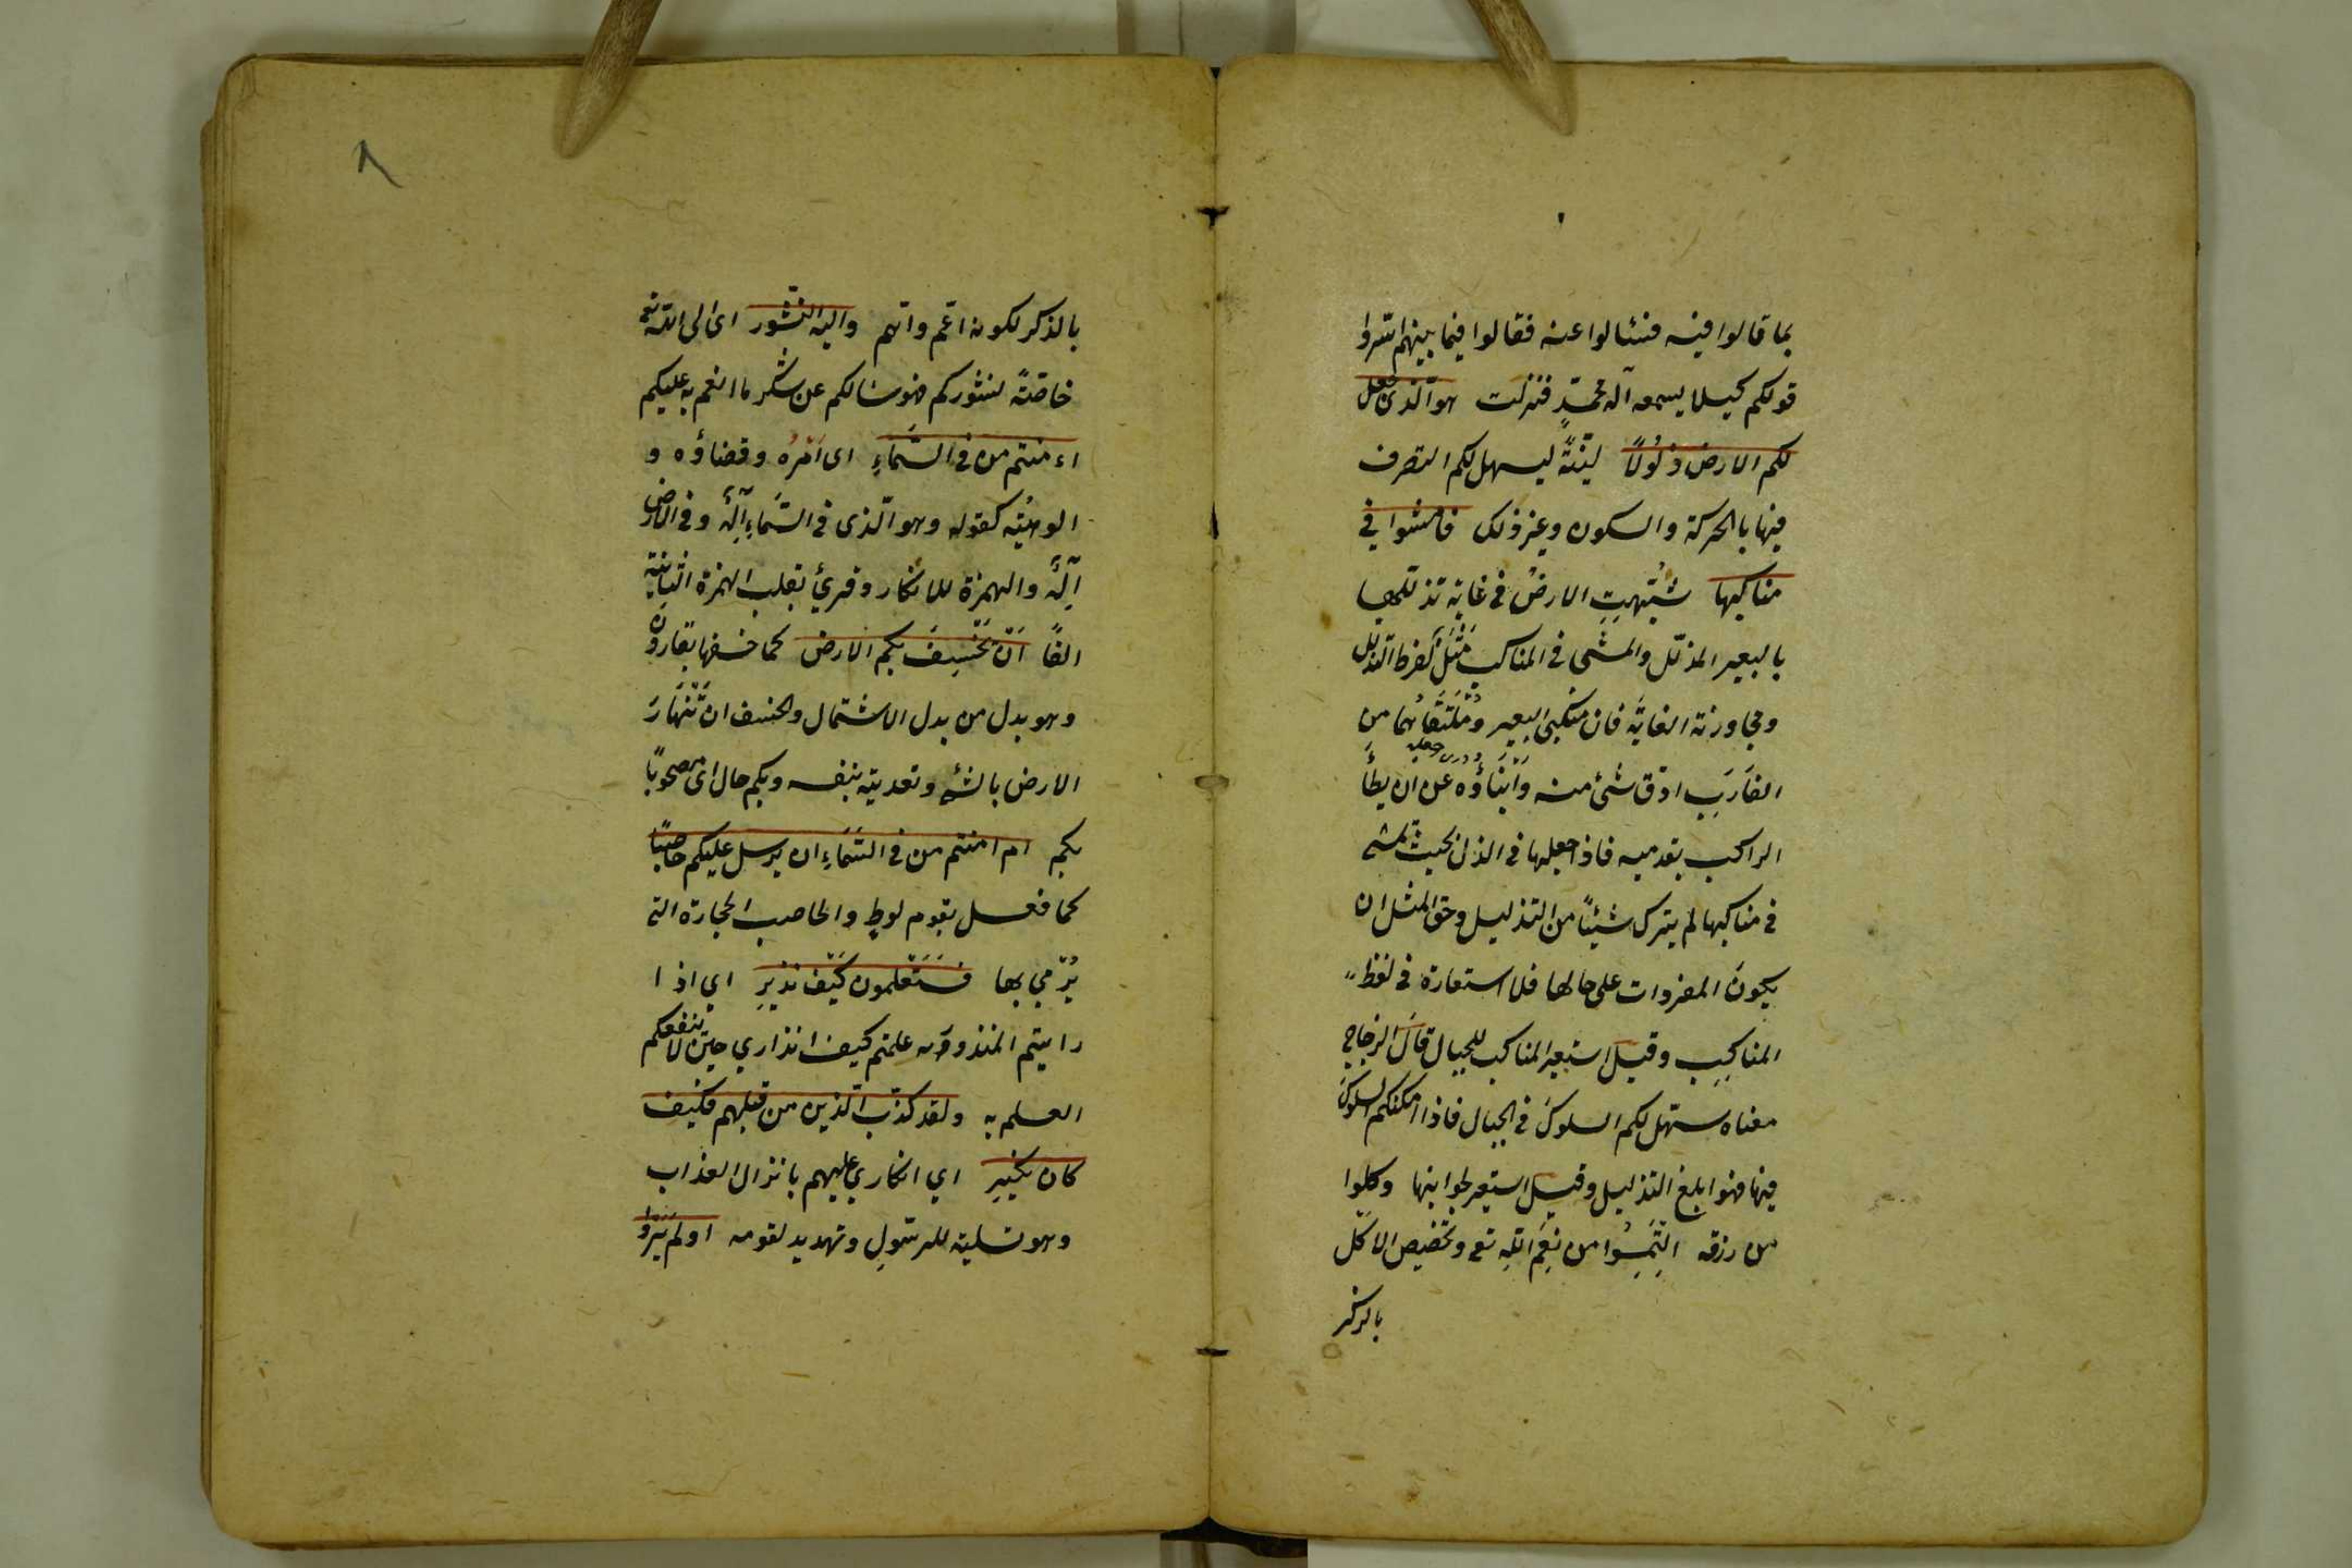 بما قالوا فيه فنئالوا عنه فقالوا فيما بينهم اسّروا
قولكم كيلا يسمعه آله محمّدٍ فنزلت هو الّذى جعل
لكم الارض ذلُولاً ليّنةً ليسهل لكم التصرف
فيها بالحركة والسكون وغير ذلك فامشوا في
مناكبها شُبّهتِ الارضُ فى غاية تذللها
بالبعير المذلّل والمشى فى المناكب مَثَلٌ لفرط التذلل
ومجاوزته الغايةَ فان منكبى البعير ومُلتَقَاهُما من
الغَارَبِ ادقّ شئ منه وَاَنبَاؤُه عن ان يطأَ
الراكب بقدميه فاذا جعلها فى الذل بحيث يمشى
فى مناكبها لم يترك شيئاً من التذليل وحق المثل ان
يكونَ المفردات على حالها فلا استعارة فى لفظ
المناكبِ وقيل استعير المناكب للجبال قالَ الزجاج
معناه سهّل لكم السلوكَ فى الجبال فاذا امكنكم السلوكَ
فيها فهو ابلغ التذليل وقيل استعير لجوابنها وكلوا
من رزقه التَمِسُوا من نِعَم اللّهِ تع وتخصيص الاكل
بالذكر
٨
بالذكر لكونه اعمّ واتم واليه النّشور اى الى اللّه تع
خاصّةً نشوركم فهو سئالكم عن شكر ما انعم به عليكم
اءمنتم من فى السَّمَاءِ اى اَمْرُهُ وقضاؤه و
الوهيُّته كقوله وهو الّذى فى السَّمَاءِ اِلٰهٌ وفى الارض
اِلٰهٌ والهمزة للانكار وقرئ بقلب الهمزة الثانية
الفاً اَنْ يَخْسِفَ بكم الارض كما خسفها بقارون
وهو بدل من بدل الاشتمال والخسف ان تَنْهَارَ
الارض بالشئ وتعديته بنفسه وبكم حال اى مصحوباً
بكم ام امنتم من فى السَّمَاءِ ان يرسل عليكم حاصباً
كما فعل بقوم لوطٍ والحاصب الحجارة التى
يُرْمي بها فَسَتَعْلمون كَيْف نذيرِ اي اذا
رايتم المنذر به علمتم كيف انذاري حين لا ينفعكم
العلم به ولقد كذّب الّذين من قبلهم فكيف
كان نكيرِ اي انكاري عليهم بانزال العذاب
وهو تسلية للرسُولِ وتهديد لقومه اولم يَرَوْا